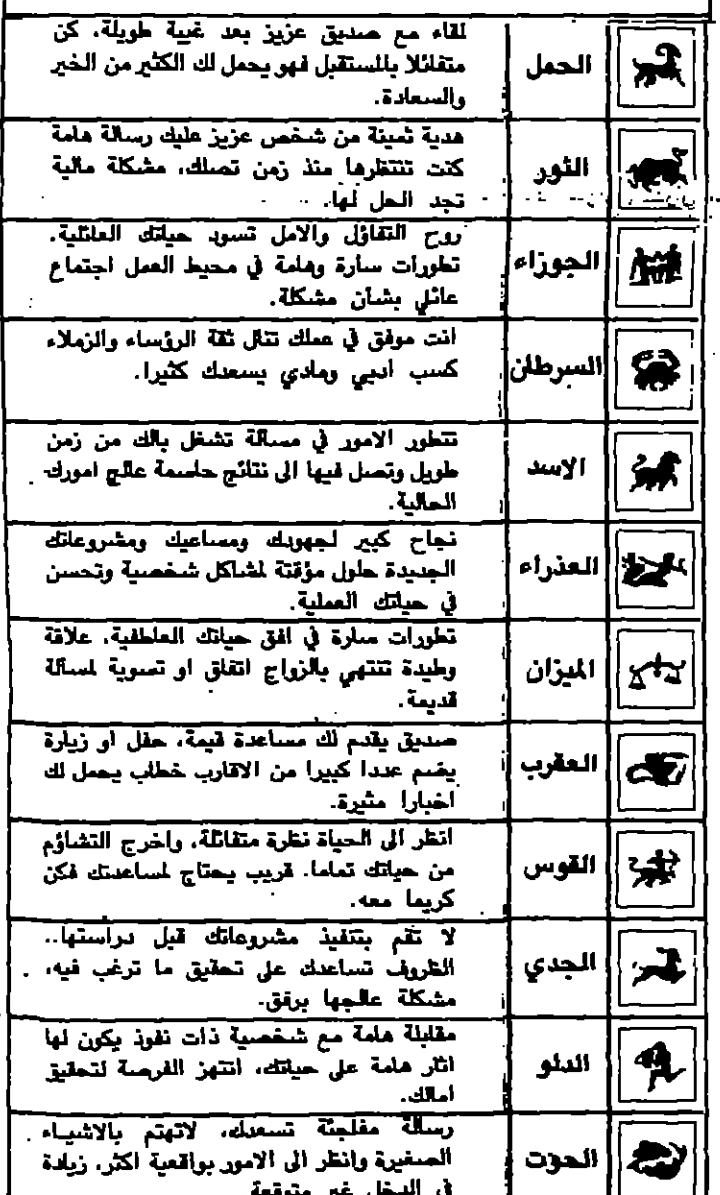 الحمل
لقاء مع صديق عزيز بعد غيبة طويلة. كن
متفائلا بالمستقبل فهو يحمل لك الكثير من الخير
والسعادة.
الثور
هدية ثمينة من شخص عزيز عليك رسالة هامة
كنت تنتظرها منذ زمن تصلك، مشكلة مالية
تجد الحل لها.
الجوزاء
روح التفاؤل والامل تسود حياتك العائلية.
تطورات سارة وهامة في محيط العمل اجتماع
عائلي بشأن مشكلة.
السرطان
انت موفق في عملك تنال ثقة الرؤساء والزملاء
كسب ادبي ومادي يسعدك كثيرا.
الاسد
تتطور الامور في مسالة تشغل بالك من زمن
طويل وتصل فيها الى نتائج حاسمة عالج امورك
الحالية.
العذراء
نجاح كبير لجهودك ومساعيك ومشروعاتك
الجديدة حلول مؤقتة لمشاكل شخصية وتحسن
في حياتك العملية.
الميزان
تطورات سارة في افق حياتك العاطفية. علاقة
وطيدة تنتهي بالزواج اتفاق او تسوية لمسألة
قديمة.
العقرب
صديق يقدم لك مساعدة قيمة، حفل او زيارة
يضم عددا كبيرا من الاقارب خطاب يحمل لك
اخبارا مثيرة.
القوس
انظر الى الحياة نظرة متفائلة، واخرج التشاؤم
من حياتك تماما. قريب يحتاج لمساعدتك فكن
كريما معه.
الجدي
لا تقم بتنفيذ مشروعاتك قبل دراستها..
الظروف تساعدك على تحقيق ما ترغب فيه،
مشكلة عالجها برفق.
الدلو
مقابلة هامة مع شخصية ذات نفوذ يكون لها
اثار هامة على حياتك، انتهز الفرصة لتحقيق
امالك.
الحوت
رسالة مفاجئة تسعدك، لاتهتم بالاشياء
الصغيرة وانظر الى الامور بواقعية اكثر، زيادة
في الدخل غير متوقعة